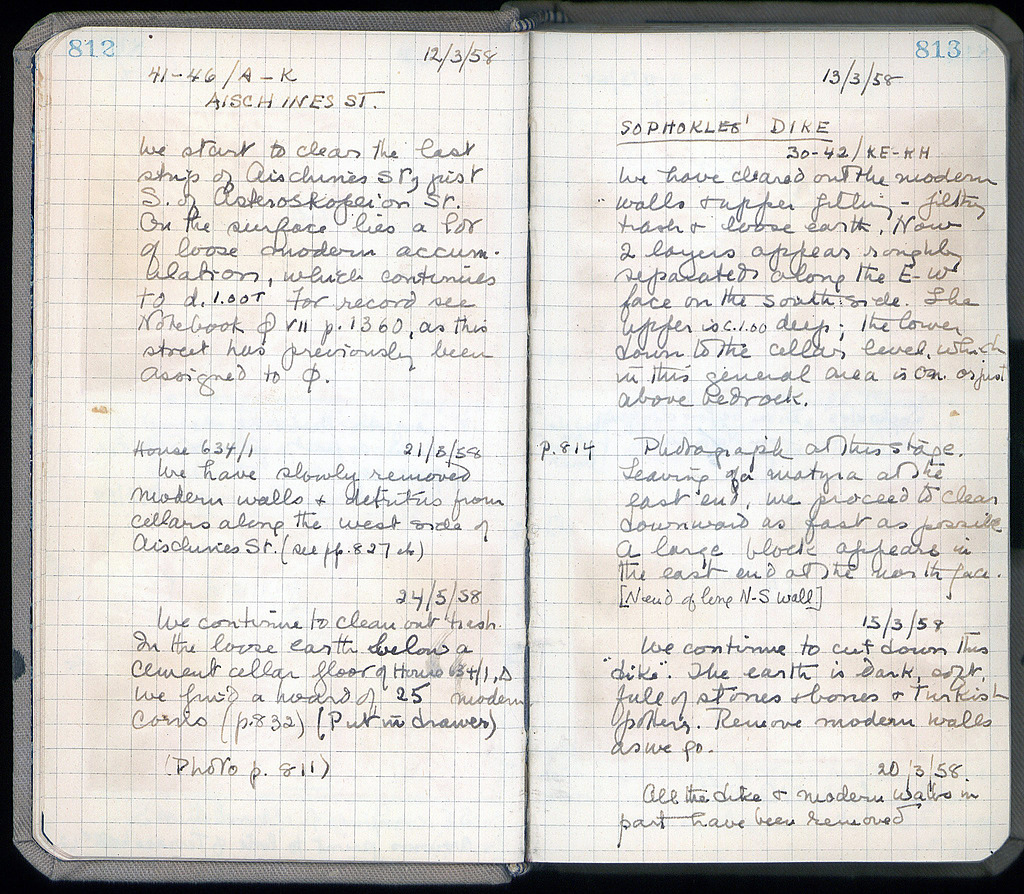 812
12/3/58
41-46/A-K
AISCHINES ST.
We start to clear the last
strip of Aischines St, just
S. of Asteroskopeion St.
On the surface lies a lot
of loose modern accum-
ulation, which continues
to d. 1.00 For record see
Notebook Φ VII p. 1360, as this
street has previously been
assigned to Φ.
House 634/1 21/3/58
We have slowly removed
modern walls & detritus from
cellars along the west side of
Aischines St. (see pp. 827 )
24/5/58
We continue to clean out trash.
In the loose earth below a
cement cellar floor of House 634/1, Δ
we find a hoard of 25 modern
coins (p. 832) (Put in drawer)
(Photo p. 811)
813
13/3/58
SOPHOKLES' DIKE
30-42/KE-KH
We have cleared out the modern
walls & upper filling - filthy
trash & loose earth. Now
2 layers appear roughly
separated along the E-W
face on the south side. The
upper is c. 1.00 deep; the lower
down to the cellar level, which
in this general area is on or just
above bedrock.
p. 814 Photograph at this stage.
Leaving a martyra at the
east end, we proceed to clear
downward as fast as possible
A large block appears in
the east end at the north face.
[N end of long N-S wall]
15/3/58
We continue to cut down this
"dike". The earth is dark, soft,
full of stones & bones & Turkish
pottery. Remove modern walls
as we go.
20/3/58.
All the dike & modern walls in
part have been removed